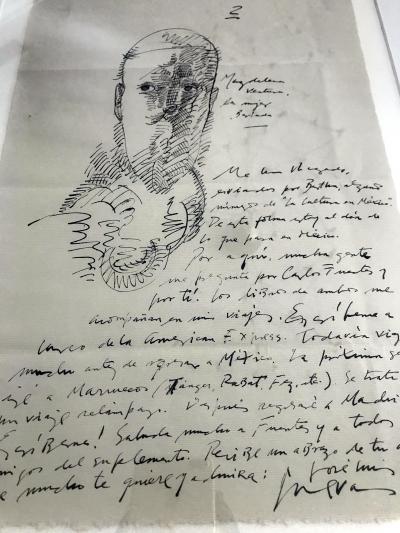 2
Magdalena
Ventura.
La mujer
Barbada
Me han llegado,
enviados por Batlles, algunos
números de "La Cultura en México".
De esta forma estoy al día de
lo que pasa en México.
Por aquí, mucha gente
me pregunta por Carlos Fuentes y
por ti. Los libros de ambos me
acompañan en mis viajes. Escríbeme a
cargo de la American Express. Todavía via
mucho antes de regresar a México. La próxima se
iré a Marruecos (Tánger, Rabat, Fez, etc.). Se trata
un viaje relámpago. Después regresaré a Madri
Escríbeme! Saluda mucho a Fuentes y a todos
migos del suplemento. Recibe un abrazo de tu a
e mucho te quiere y admira:
José Luis
Cuevas